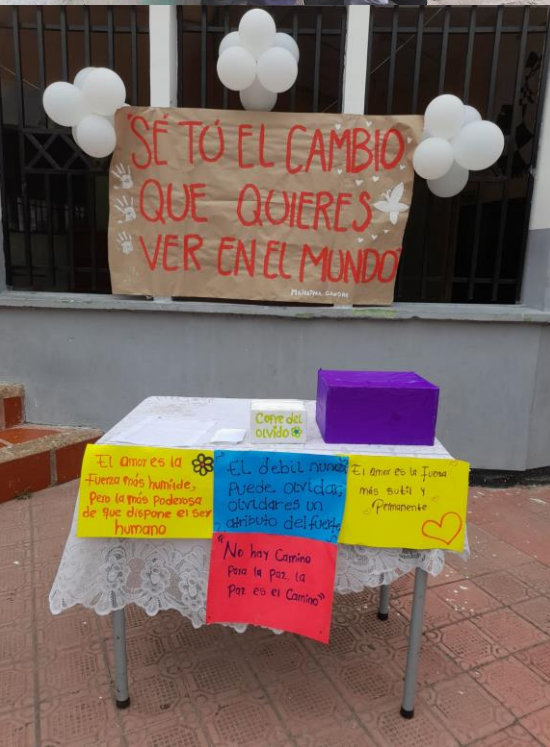 "SÉ TÚ EL CAMBIO
QUE QUIERES
VER EN EL MUNDO"
MAHATMA GANDHI
Cofre del
olvido
El amor es la
Fuerza más humilde,
Pero la más Poderosa
de que dispone el ser
humano
EL debil nunca
Puede olvidar,
olvidar es un
atributo del fuerte
El amor es la Fuerza
más sutil y
Permanente
"No hay Camino
Para la Paz, la
Paz es el Camino"